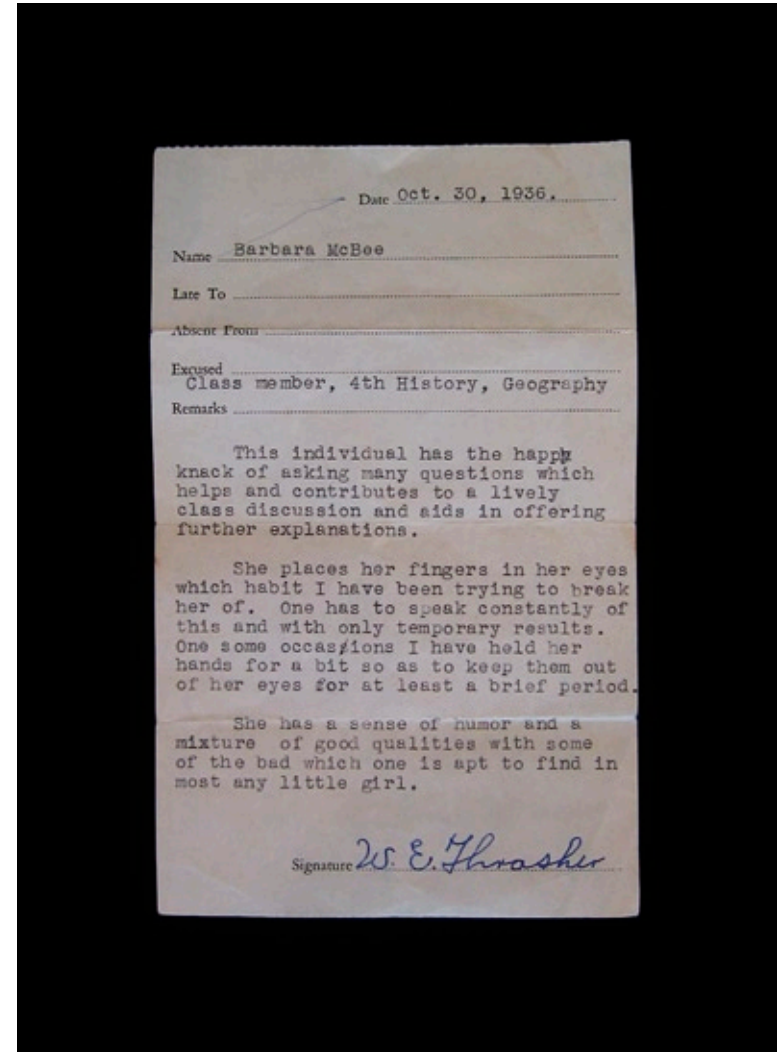 Date Oct. 30, 1936.
Name Barbara McBee
Late To
Absent From
Excused
Class member, 4th History, Geography
Remarks
This individual has the happy
knack of asking many questions which
helps and contributes to a lively
class discussion and aids in offering
further explanations.
She places her fingers in her eyes
which habit I have been trying to break
her of. One has to speak constantly of
this and with only temporary results.
One some occasions I have held her
hands for a bit so as to keep them out
of her eyes for at least a brief period.
She has a sense of humor and a
mixture of good qualities with some
of the bad which one is apt to find in
most any little girl.
Signature W. E. Thrasher